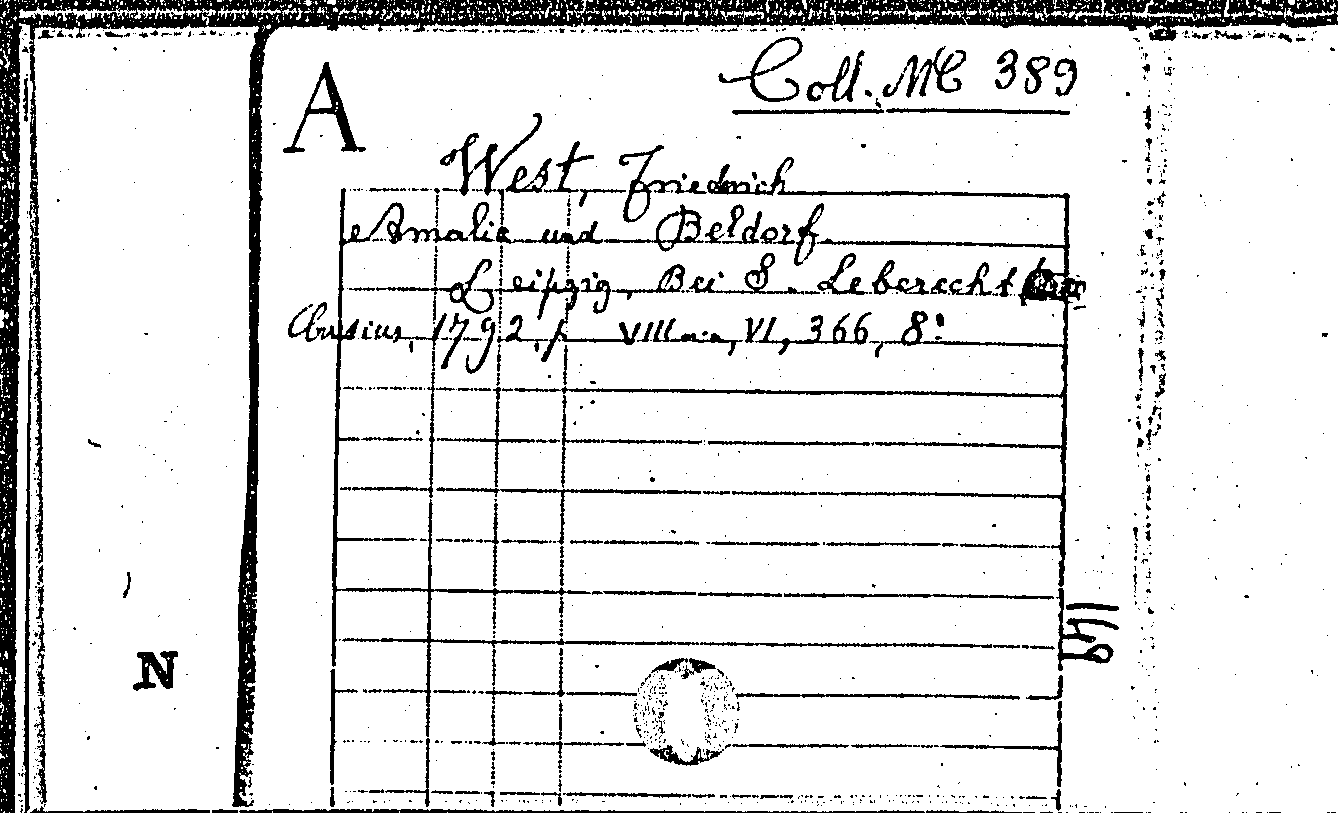 Coll. MC 389
A
West, Friedrich
Amalie und Beldorf.
Leipzig, Bei S. Leberecht
Crusius, 1792, VIII, VI, 366, 8°
149
N